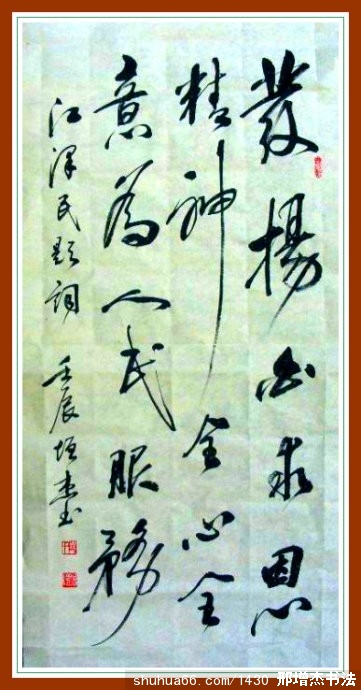 發揚白求恩
精神全心全
意為人民服務
江澤民題詞 壬辰增杰书
shuhua66.com/1430 邢增杰书法